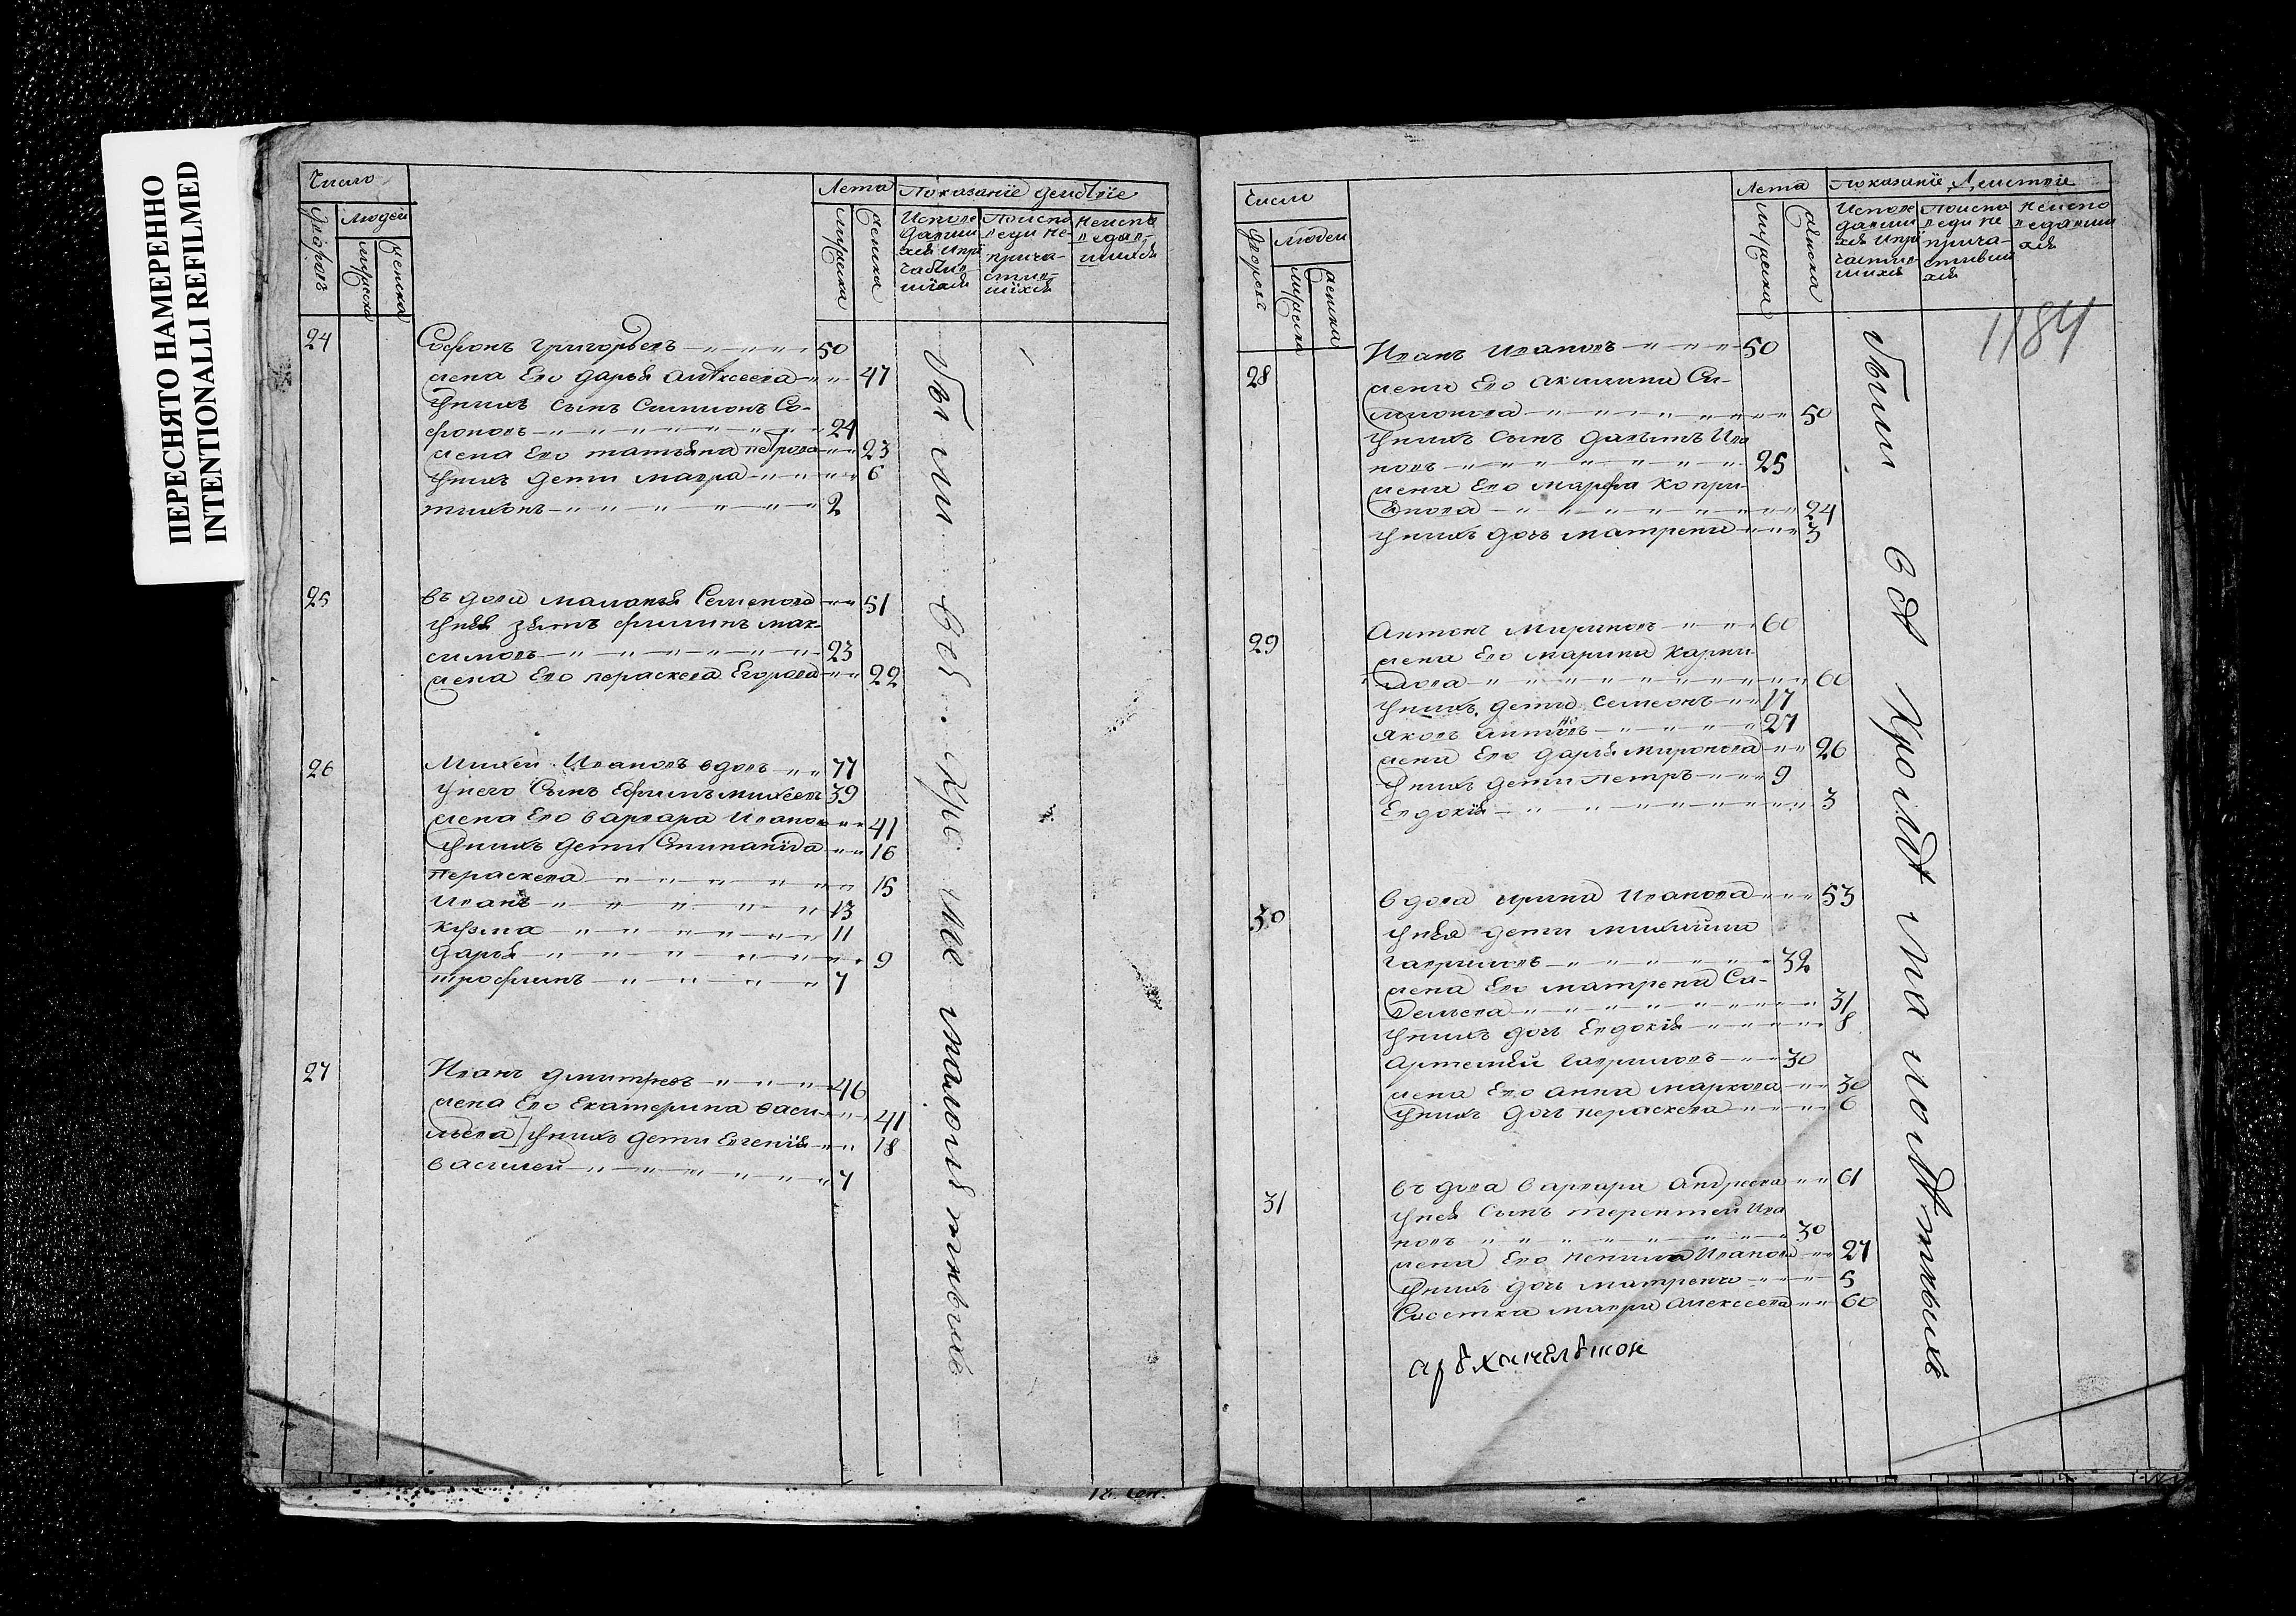 ПЕРЕСНЯТО НАМЕРЕННО
INTENTIONALLI REFILMED
Число
Дворовъ
Людей
мужеска
женска
Лета
мужеска
женска
Показанїе действїе
Исповедавши
хся и при
частив
шихся
По испо
веди не
прича-
стив-
шихся
Неиспо
ведав-
шихся
24
Софонъ Григорьевъ 50
жена Его дарья Алексеева 47
у нихъ сынъ Симионъ Со-
фоновъ 24
жена Его татьяна петрова 23
у нихъ дети мавра 6
тихонъ 2
25
въдова маланья Семенова 51
у нея зять филипъ мак-
симовъ 23
жена Его пераскева Егорова 22
26
Михей Ивановъ вдовъ 77
у него Сынъ Ефимъ михеевъ 39
жена Его варвара Иванова 41
у нихъ дети Степанида 16
пераскева 15
Иванъ 13
Кузма 11
дарья 9
трофимъ 7
27
Иванъ дмитревъ 46
жена Его Екатерина васи- 41
льева у нихъ дети Евгенїя 18
василей 7
были вся Кроме малолетныхъ
Число
Дворовъ
Людей
мужеска
женска
Лета
мужеска
женска
показанїе Действїе
Испове
давши
хся и при
частив
шихся
По испо
веди не
прича-
стивши
хся
Неиспо
ведавши
хся
1184
28
Иванъ Ивановъ 50
жена Его акилина Си-
мионова 50
у нихъ сынъ давыдъ Ива
новъ 25
жена Его марфа Копри-
янова 24
у нихъ дочь матрена 3
29
Антонъ мироновъ 60
жена Его марина карпи-
лова 60
у нихъ дети семеонъ 17
яковъ антоновъ 27
жена Его дарья миронова 26
у нихъ дети петръ 9
Евдокїя 3
30
вдова ирина Иванова 53
у нея дети михаила
гавриловъ 32
жена Его матрена Са-
вельева 31
у нихъ дочь Евдокїя 8
артемей гавриловъ 30
жена Его анна маркова 30
у нихъ дочь пераскева 6
31
въдова варвара андреева 61
у нея сынъ терентей Ива
новъ 30
жена Его ненила Иванова 27
у нихъ дочь матрена 5
Свостка мавра алексеева 60
были вся Кроме малолетныхъ